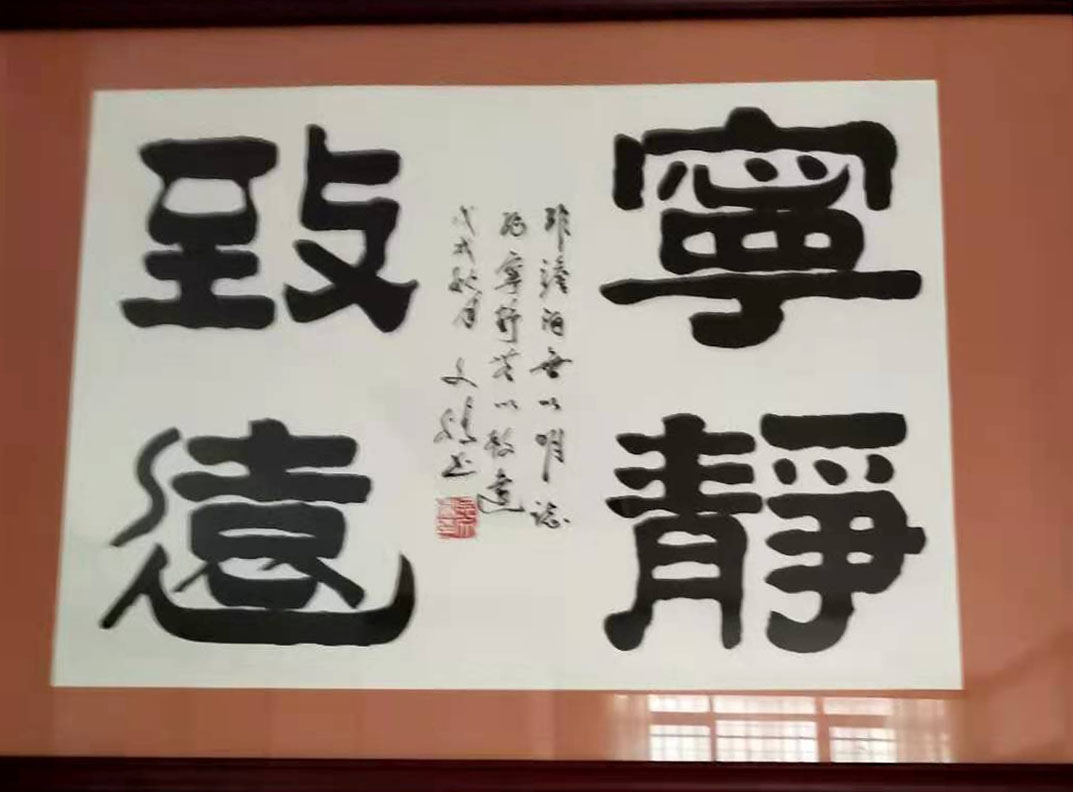 寧靜
非澹泊無以明誌
非寧靜無以致遠
戊戌秋月 文
致遠